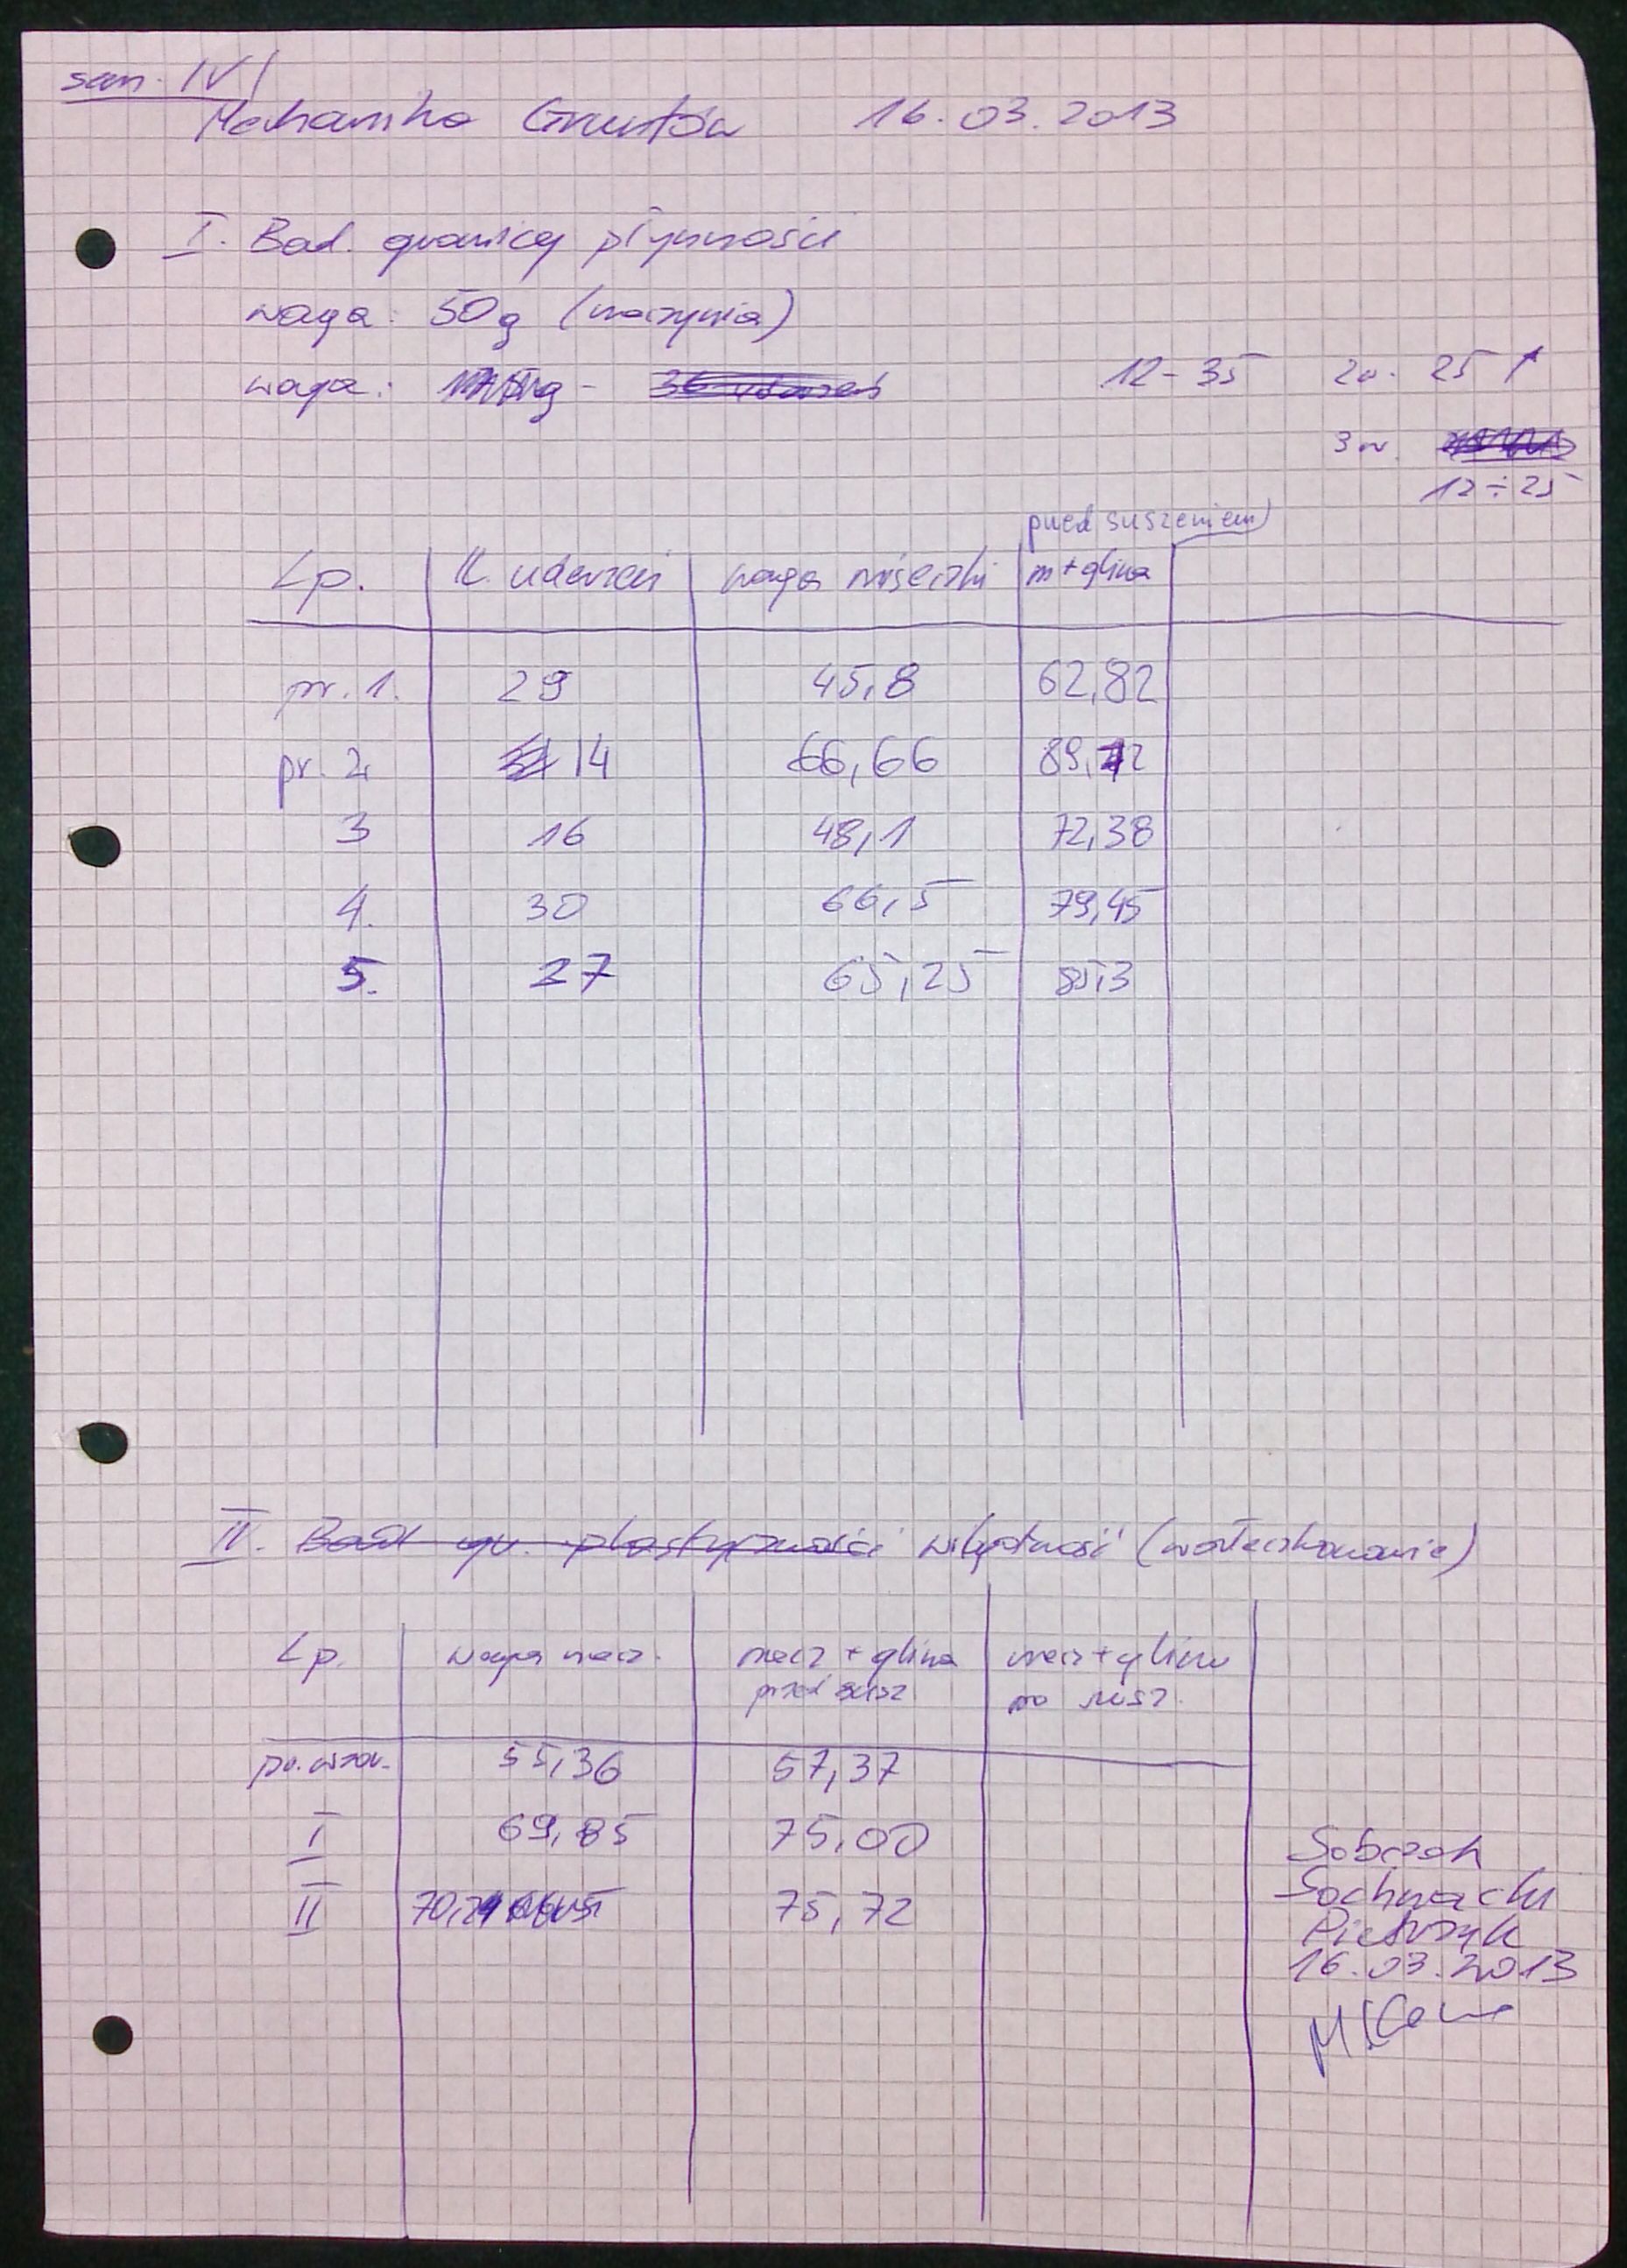 sem. IV
Mechanika Gruntów 16.03.2013
I. Bad. granicy płynności
waga: 50g (naczynia)
waga: - 12-35 20. 25
3 12÷25
przed suszeniem
Lp. il. uderzeń waga miseczki m+glina
pr. 1. 29 45,8 62,82
pr. 2 14 66,66 89,72
3 16 48,1 72,38
4. 30 66,5 79,45
5. 27 65,25 85,3
II. Bad. gr. plastyczności wilgotność (wałeczkowanie)
Lp. waga nacz. nacz + glina nacz + glina
przed susz po susz.
55,36 57,37
I 69,85 75,00
II 70, 75,72
Sobczak
Sochnacki
Pietrzyk
16.03.2013